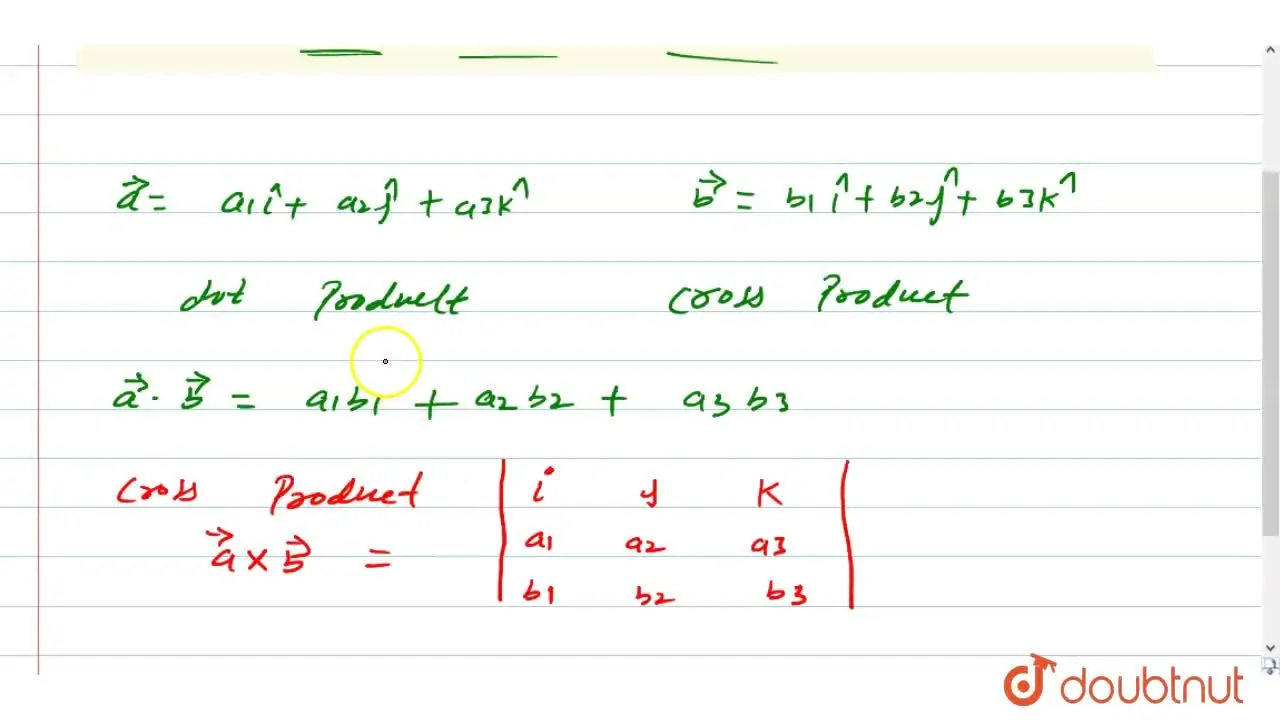 a⃗ = a1 î + a2 ĵ + a3 k̂ b⃗ = b1 î + b2 ĵ + b3 k̂
dot Product Cross Product
a⃗ . b⃗ = a1 b1 + a2 b2 + a3 b3
Cross Product | i j K |
a⃗ × b⃗ = | a1 a2 a3 |
| b1 b2 b3 |
doubtnut